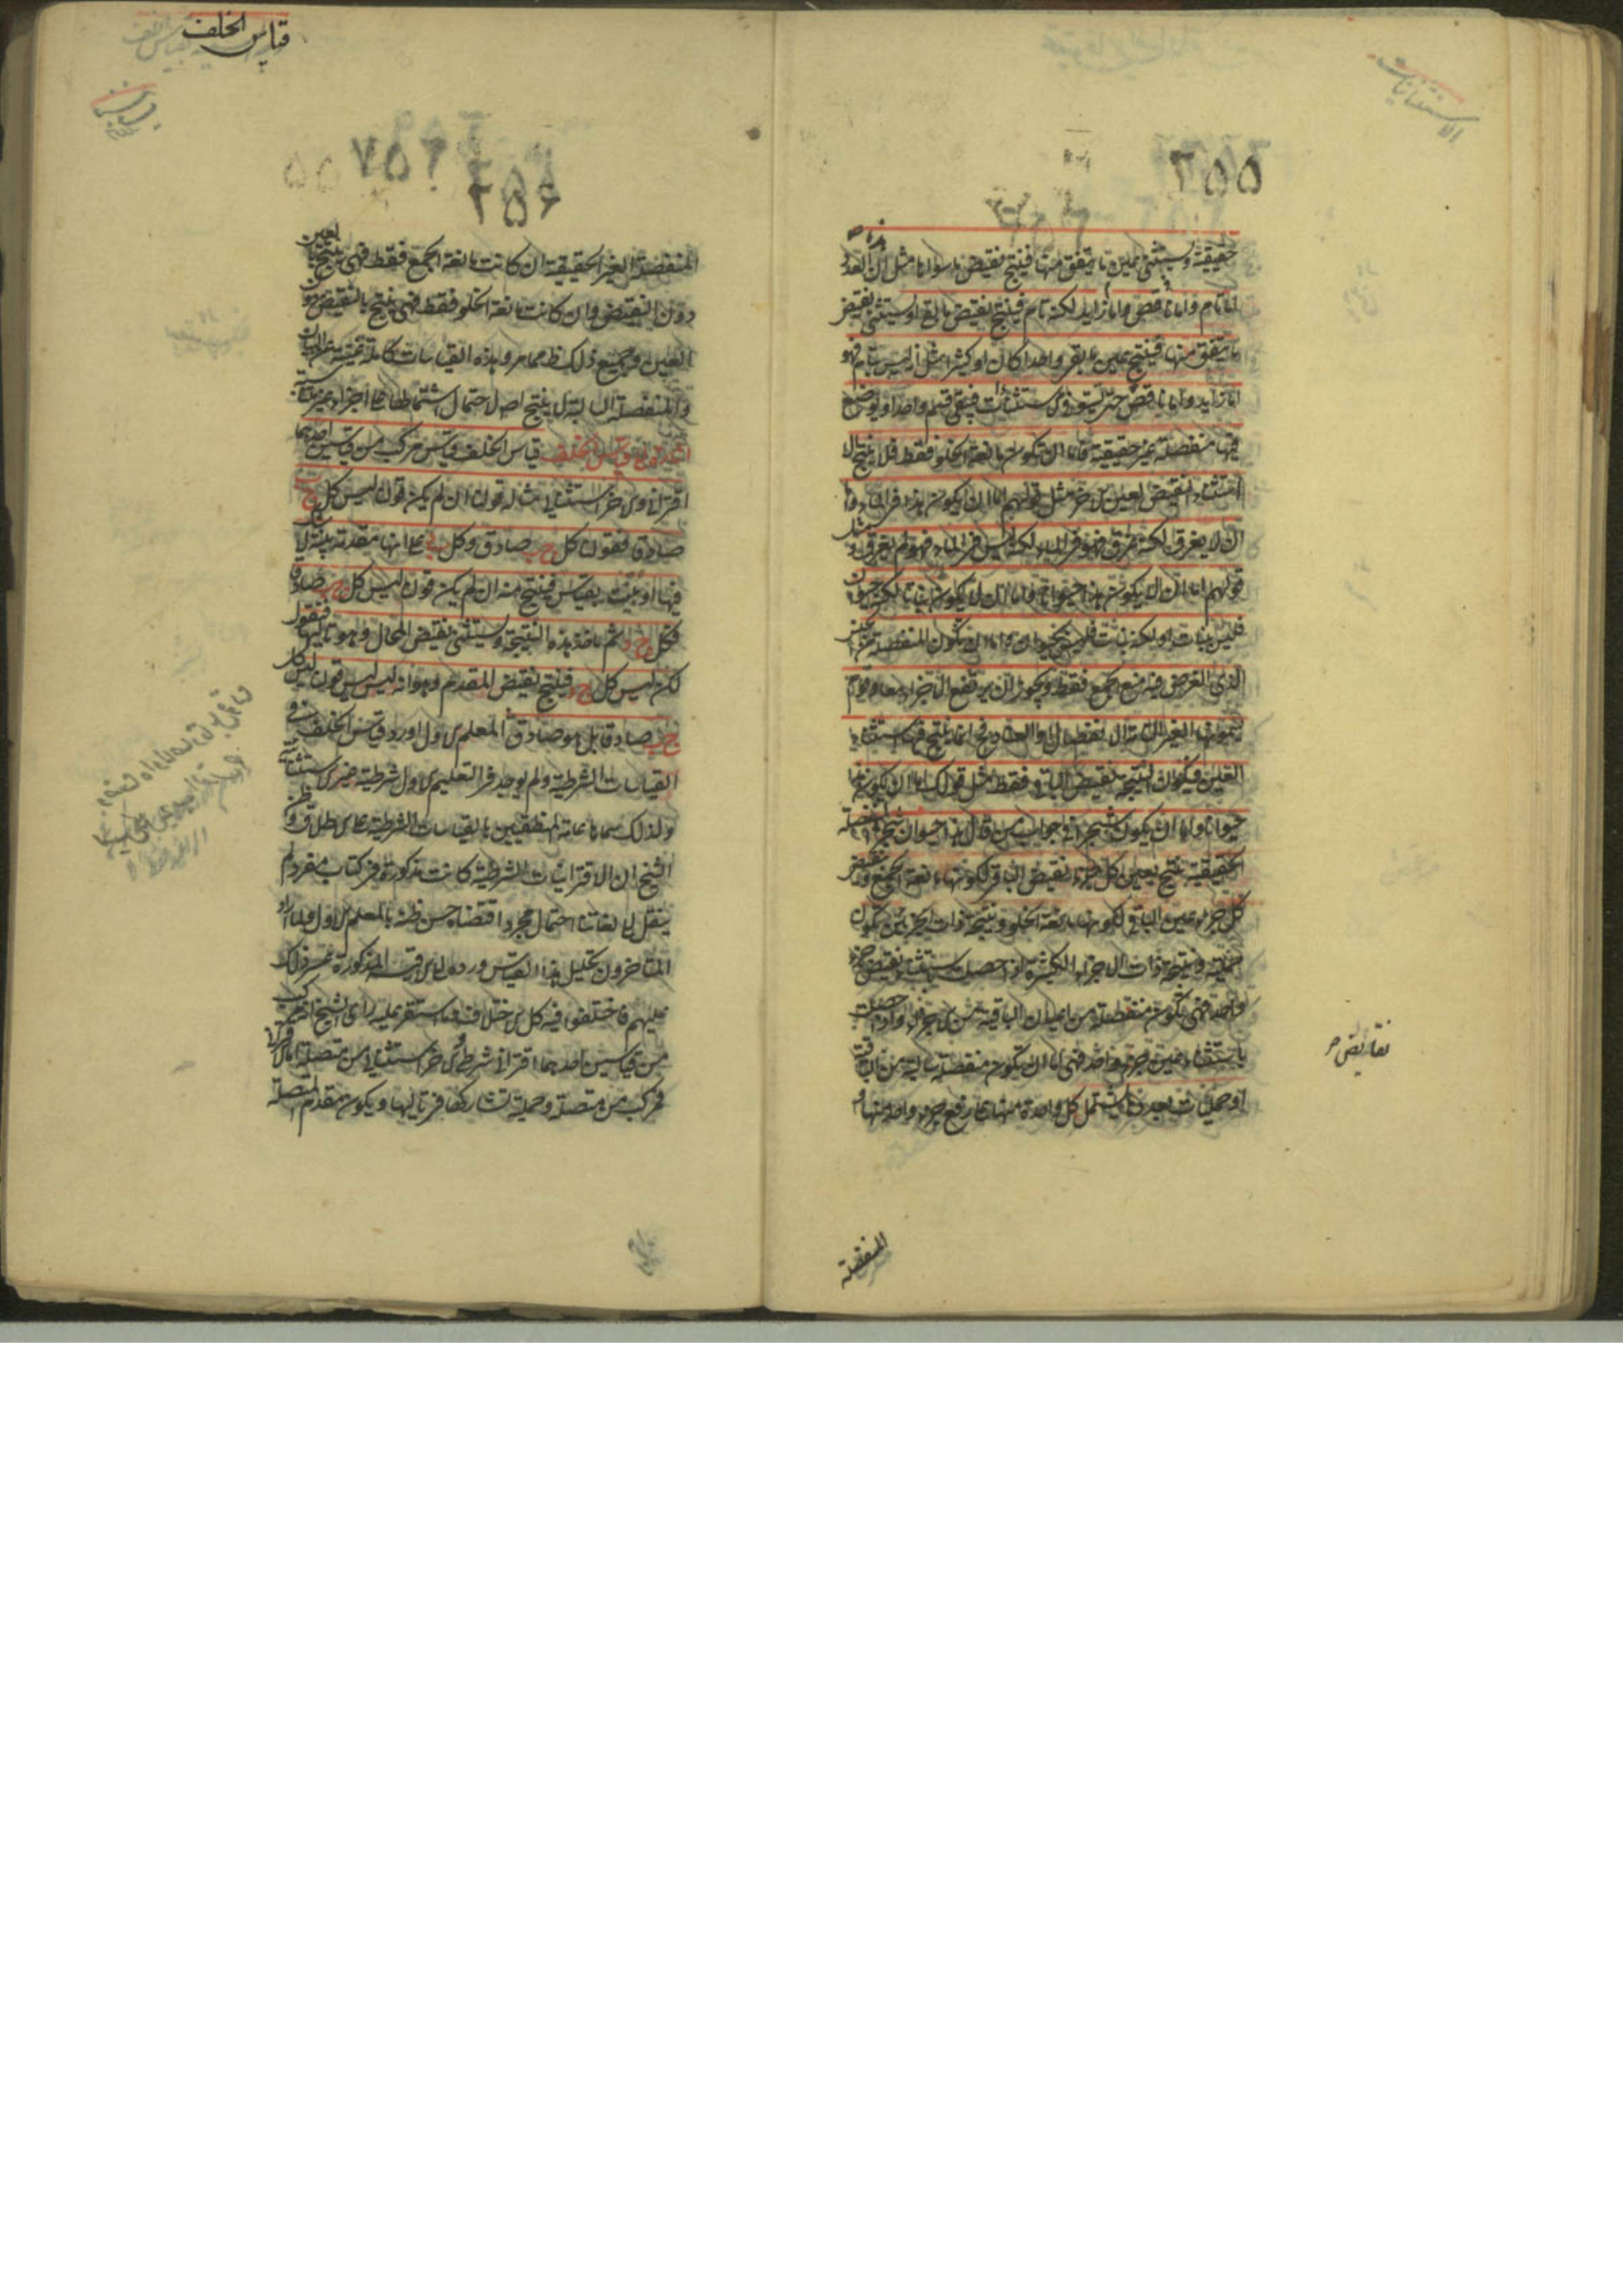 الاستثنائيات
٢٥٥
حقيقة ويستثنى عين ما يتفق منها فينتج نقيض ما سواها مثل ان هذا العدد
اما تام واما ناقص واما زايد لكنه تام فينتج نقيض ما بقى او يستثنى نقيض
ما يتفق منها فينتج عين ما بقى واحدا كان او كثيرا مثل انه ليس بتام فهو
اما زايد واما ناقص حتى يستوفى الاستثناات فيبقى قسم واحد او يوضع
فيها منفصلة غير حقيقية فاما ان تكون مانعة الخلو فقط فلا ينتج الا
استثناء النقيض لعين الاخر مثل قولهم اما ان يكون هذا فى الماء واما
ان لا يغرق لكنه غرق فهو فى الماء لكنه ليس فى الماء فهو لم يغرق ومثل
قولهم اما ان لا يكون هذا حيوانا واما ان لا يكون نباتا لكنه حيوان
فليس بنبات او لكنه نبات فليس بحيوان واما ان يكون المنفصلة من الجنس
الذى الغرض فيه منع الجمع فقط ويجوز ان يرتفع الاجزاء معا وقوم
يسمونها الغير التامة الانفصال او العناد فح انما ينتج فيها استثناء
العين ويكون النتيجة نقيض الباقى فقط مثل قولك اما ان يكون هذا
حيوانا واما ان يكون شجرا فى جواب من قال هذا حيوان شجر المنفصلة
الحقيقية ينتج بعين كل جزء نقيض الباقى لكونها مانعة الجمع وبنقيض
كل جزء عين الباقى لكونها مانعة الخلو ونتيجة ذات الجزئين تكون
حملية ونتيجة ذات الاجزاء الكثيرة اذا حصلت باستثناء نقيض جزء
واحد فهى تكون منفصلة من اعيان الباقية من الاجزاء واذا حصلت
باستثناء عين جزء واحد فهى اما ان يكون منفصلة سالبة من الباقية
او حمليات بعدد ما يشتمل كل واحدة منها على رفع جزء واحد منها و
نقايض
المنفصلة
قياس الخلف
٢٥٦
المنفصلة الغير الحقيقية ان كانت مانعة الجمع فقط فهى ينتج بالعين
دون النقيض وان كانت مانعة الخلو فقط فهى ينتج بالنقيض دون
العين وجميع ذلك ظ مما مر وهذه القياسات كاملة غنية عن البيان
والمنفصلة السالبة لا ينتج اصلا لاحتمال اشتمالها على اجزاء غير متناسبة
اشارة الى قياس الخلف قياس الخلف قياس مركب من قياسين احدهما
اقترانى والاخر استثنائى مثاله قولنا ان لم يكن قولنا ليس كل ج ب
صادقا فقولنا كل ج ب صادق وكل ب د على انها مقدمة بينة لا شك
فيها او بينت بقياس فينتج منه ان لم يكن قولنا ليس كل ج ب صادقا
فكل ج د ثم ناخذ هذه النتيجة ونستثنى نقيض المحال وهو تاليها فنقول
لكن ليس كل ج د فينتج نقيض المقدم وهو انه ليس ليس قولنا ليس كل
ج ب صادقا بل هو صادق المعلم الاول اورد قياس الخلف فى
القياسات الشرطية ولم يوجد فى التعليم الاول شرطية غير الاستثنائية
ولذلك سماها عامة المنطقيين بالقياسات الشرطية على الاطلاق وظن
الشيخ ان الاقترانيات الشرطية كانت مذكورة فى كتاب مفرد لم
ينقل الى لغاتنا احتمال مجرد اقتضاه حسن ظنه بالمعلم الاول ولما اراد
المتاخرون تحليل هذا القياس ورده الى الاقيسة المذكورة عسر ذلك
عليهم فاختلفوا فيه كل الاختلاف فما استقر عليه راى الشيخ انه مركب
من قياسين احدهما اقترانى شرطى والاخر استثنائى من متصلة اما الاقترانى
فمركب من متصلة وحملية تشاركها فى تاليها ويكون مقدم المتصلة